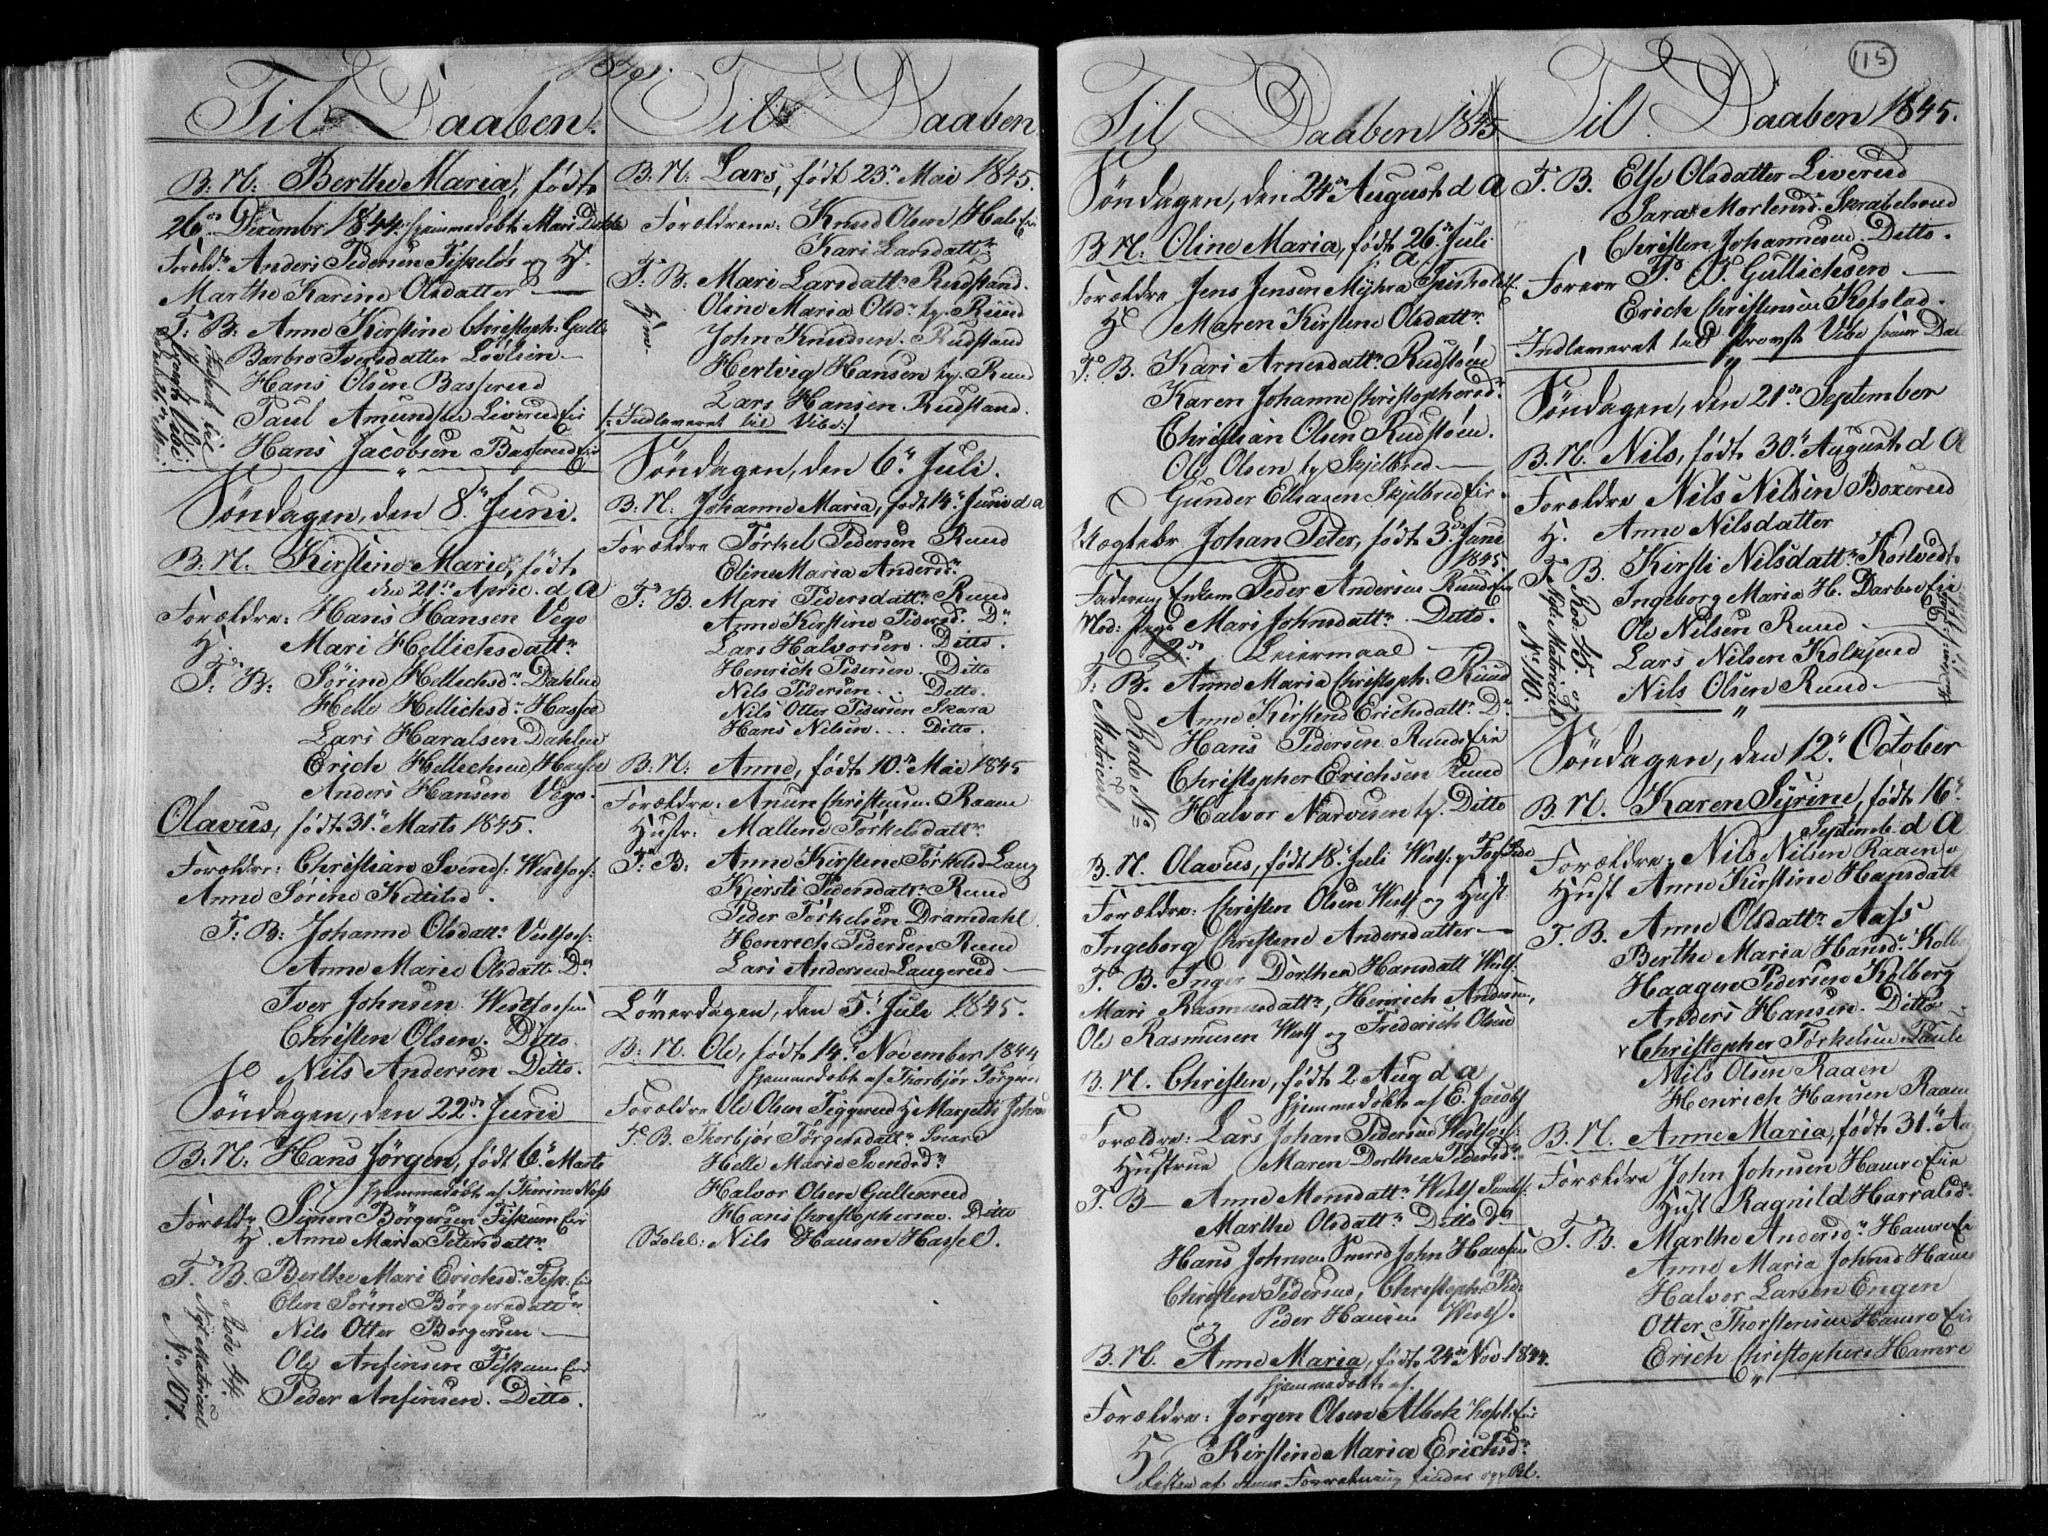 Til Daaben.
B. N: Berthe Maria, født
26de Decembr 1844. hjemmedøbt
Foreld: Anders Pedersen Fiskeløs og H.
Marthe Karine Olsdatter
F: B: Anne Kirstine Christoph:
Barbro Iversdatter Løvlien
Hans Olsen Basserud
Paul Amundsen Liverud Eie
Hans Jacobsen Basserud Eie
Indlevert til
Provst Vibe
Søndagen, den 8. Juni.
B. N. Kirstine Marie, født
den 21de April d A
Forældre: Hans Hansen Vego
H. Mari Hellichsdattr
F: B: Sørine Hellechsdr Dahlen
Helle Hellichsd: Hassel
Lars Haralsen Dahlen
Erich Hellechsen, Hassel
Anders Hansen Vego.
Olavus, født 31. Marts 1845.
Forældr: Christian Svends: Westfos:
Anne Sørine Kittilsd.
F: B: Johanne Olsdattr Vestfos:
Anne Marie Olsdatt Do
Iver Johnsen Westfossen
Christen Olsen. Ditto.
Nils Andersen Ditto.
Søndagen, den 22de Juni
B: N: Hans Jørgen, født 6. Marts
hjemmedøbt af Thorine Næss
Foreld: Simon Børgersen Fiskum Eie
H. Anne Maria Petersdattr
F. B. Berthe Mari Ericksd: Fisk. Eie
Olen Sørine Børgersdattr
Nils Otter Børgersen
Ole Anfinsen Fiskum Eie
Peder Anfinsen. Ditto.
Rode 44.
Nyt Matricul
No 107.
Til Daaben
B: N: Lars, født 23de Mai 1845.
Forældrene: Knud Olsen Hals Eie
Kari Larsdattr
F: B: Mari Larsdattr Rudstand.
Oline Maria Olsdr hg. Ruud
John Knudsen. Rudstand
Hertvig Hansen hg. Ruud
Lars Hansen Rudstand.
/: Indleveret til Vibe:/
Søndagen, den 6. Juli.
B: N: Johanne Maria, født 14. Juni d a
Forældre Torkel Pedersen Ruud
Eline Maria Andersd:
F: B. Mari Pedersdattr Ruud
Anne Kirstine Pedersd. Do
Lars Halvorsen. Ditto.
Henrich Pedersen. Ditto
Nils Pedersen. . Ditto.
Nils Otter Pedersen Skara
Hans Nilsen . . . Ditto.
B: N: Anne, født 10de Mai 1845
Forældre: Anun Christensen Raaen
Hustr: Mallene Torkelsdattr
F: B: Anne Kirstine Torkelsd Laug
Kjersti Pedersdattr Ruud
Peder Torkelsen Dramdahl
Henrich Pedersen Ruud
Lars Andersen Laugerud
Løverdagen, den 5. Juli 1845.
B: N. Ole, født 14. November 1844
hjemmedøbt af Thorbjør Jørgensd
Forældre Ole Olsen Tiggerud H Margethe Johns
F. B. Thorbjør Jørgensdattr Snare
Helle Maria Svendsdr
Halvor Olsen Gullixrud
Hans Christophersen. Ditto
Nils Hansen Hassel.
115
Til Daaben 1845
Søndagen, den 24de August d A
B N. Oline Maria, født 26. Juli
a
Forældre Jens Jensen Myhra
H Maren Kirstine Olsdattr
F: B. Kari Arnesdattr Rudstøen
Karen Johanne Christophersd:
Christian Olsen Rudstøen.
Ole Olsen hg Skjelbred
Gunder Ellragen Skjelbred Eie.
Uægtebr Johan Peter, født 3de Juni
1845.
Faderen, Enkem Peder Andersen Ruuds Eie
Mod: Pige Mari Johnsdattr. Ditto.
2de Leiermaal
F: B. Anne Maria Christoph. Ruud
Anne Kirstine Erichsdattr Do
Hans Pedersen Ruuds Eie
Christopher Erichsen Ruud
Halvor Narvesen hg. Ditto
Rode No
Matricul
B. N. Olavus, født 18. Juli
Forældre: Christen Olsen Westf og Hust
Ingeborg Christine Andersdatter
F. B. Inger Dorthea Hansdatt Westf:
Mari Rasmusdattr, Henrich Andersen,
Ole Rasmusen Westf og Frederich Olsen
B. N. Christen, født 2 Aug d a,
hjemmedøbt af E. Jacobs
Forældre: Lars Johan Pedersen Westfos:
Hustrue Maren Dorthea Pedersdr
F. B Anne Monsdattr Westf
Marthe Olsdattr Ditto
Hans Johnsen John Hansen
Christen Pedersen, Christoph: Ped:
og Peder Hansen Westf.
B. N. Anne Maria, født 24de Nov 1844.
hjemmedøbt af.
Forældre: Jørgen Olsen Albek
H Kirstine Maria Erichsd:
Resten af denne Forretning findes
Til Daaben 1845.
F. B. Else Olsdatter Liverud
Sara Mortensd. Skrabelsrud
Christen Johannesen Ditto.
Forrere T. B Gullichsen
Erich Christensen Kolstad.
Indleveret til Provst Vibe
Søndagen, den 21de September
B. N. Nils, født 30. August d A
Forældre Nils Nilsen Boxerud
H. Anne Nilsdatter
F. B. Kirsti Nilsdattr Kortvedt
Ingeborg Maria H. Darbo Eie
Ole Nilsen Ruud
Lars Nilsen Kolsjord
Nils Olsen Ruud
Rod. 45.
Nyt Matricul
No 10.
Søndagen, den 12. October
B. N. Karen Syrine, født 16.
Septemb d A
Forældre: Nils Nilsen Raaen
Hust Anne Kirstine Hansdatt
F. B. Anne Olsdattr Aass
Berthe Maria Hansd: Kolb
Haagen Pedersen Kolberg
Anders Hansen. Ditto
Christopher Torkelsen
Nils Olsen Raaen
Henrich Hansen Raaen
B. N. Anne Maria, født 31.
Forældre John Johnsen Hamre Eie
Hust Ragnild Harralsd:
F. B. Marthe Andersd: Hamre Eie
Anne Maria Johnsd Hamre
Halvor Larsen Engen
Otter Thorstensen Hamre Eie
Erich Christophers Hamre